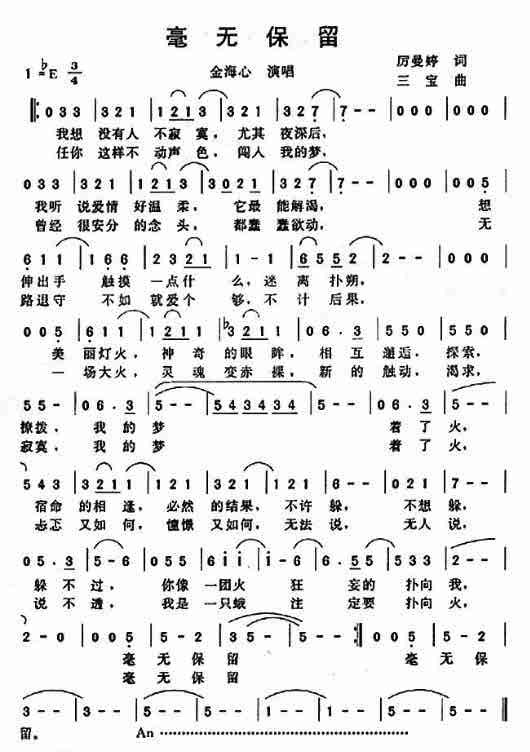 毫无保留
1=♭E 3/4
金海心 演唱
厉曼婷 词
三宝 曲
033 321 1213 3021 327 7-- 000 000
我想 没有人 不寂寞， 尤其 夜深后，
任你 这样不 动声 色， 闯入 我的梦，
033 321 1213 3021 321 1-- 000 005
我听 说爱情 好温柔， 它最 能解渴， 想
曾经 很安分 的念 头， 都蠢 蠢欲动， 无
伸出手 触摸 一点什 么，迷 离 扑朔，
路退守 不如 就爱个 够，不 计 后果，
美 丽灯火， 神 奇 的眼 眸， 相 互 邂逅， 探索，
一 场大火， 灵 魂 变赤 裸， 新 的 触动， 渴求，
55- 06.3 5-- 5434343434 5-- 06.3 5--
撩拨， 我 的 梦 着 了 火，
寂寞， 我 的 梦 着 了 火，
宿命 的相 逢， 必然 的结果， 不许 躲， 不想 躲，
忐忑 又如 何， 憧憬 又如何， 无法 说， 无人 说，
躲 不 过， 你像 一团火 狂 妄的 扑向 我，
说 不 透， 我是 一只蛾 注 定要 扑向 火，
2-0 005 2-12 2-- 35-- 5-- 5-- 000 005 5-2
毫 无保 留 毫 无 保
毫 无保 留
留。 An